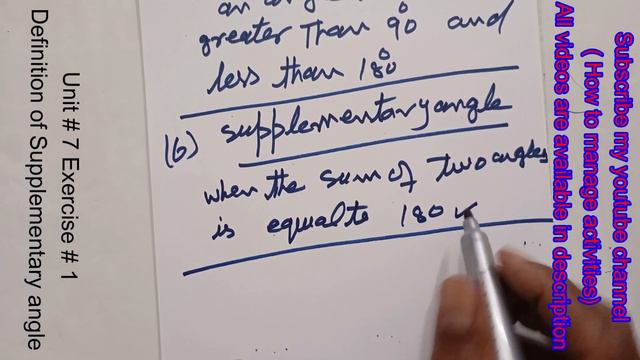 an
greater Than 90° and
less than 180°
(6) Supplementary angle
when the sum of two angles
is equal to 180
Unit # 7 Exercise # 1
Definition of Supplementary angle
Subscribe my youtube channel
( How to manage activities)
All videos are available in description